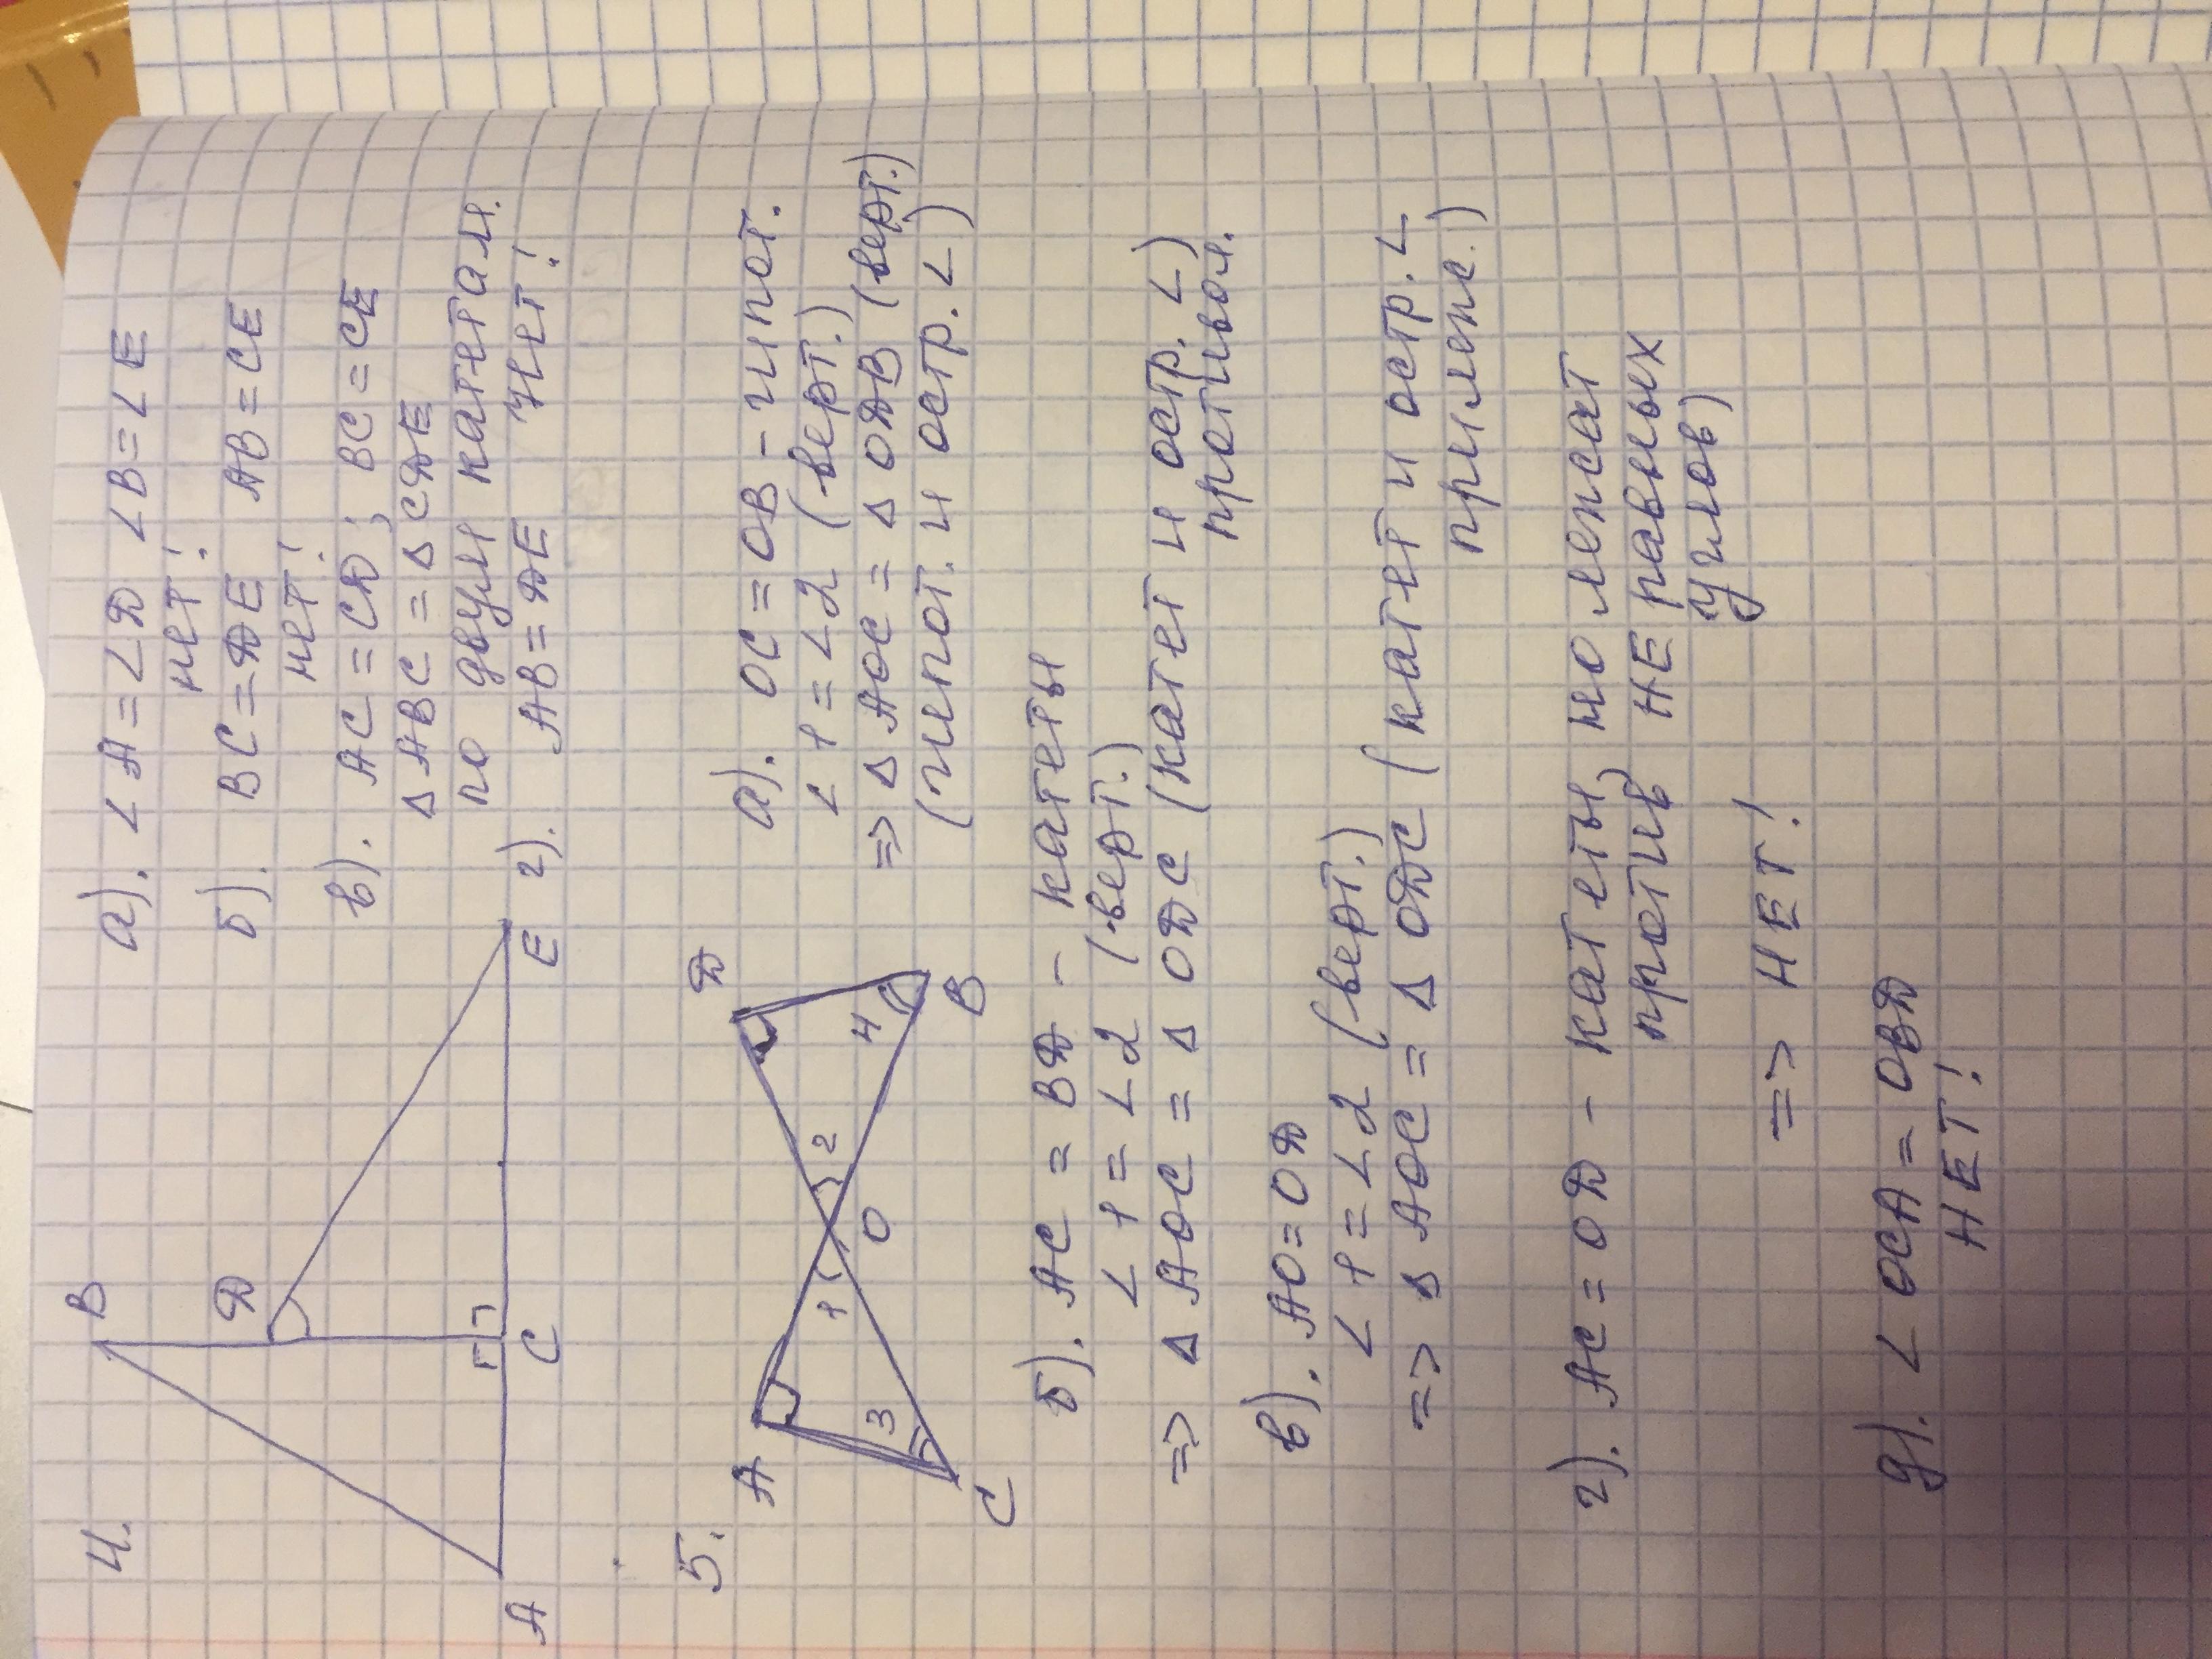 4.
B
Д
A
C
E
а). ∠A = ∠Д ∠B = ∠E
нет!
б). BC = ДE AB = CE
нет!
в). AC = CД; BC = CE
Δ ABC = Δ CДE
по двум катетам.
г). AB = ДE нет!
5.
A
Д
1
2
3
4
O
C
B
а). OC = OB - гипот.
∠1 = ∠2 (верт.)
=> Δ AOC = Δ OДB (верт.)
(гипот. и остр. ∠)
б). AC = BД - катеты
∠1 = ∠2 (верт.)
=> Δ AOC = Δ OДC (катет и остр. ∠)
противол.
в). AO = OД
∠1 = ∠2 (верт.)
=> Δ AOC = Δ OДC (катет и остр. ∠
прилеж.)
г). AC = OД - катеты, но лежат
против НЕ равных
углов)
=> НЕТ!
д). ∠ OCA = OBД
НЕТ!